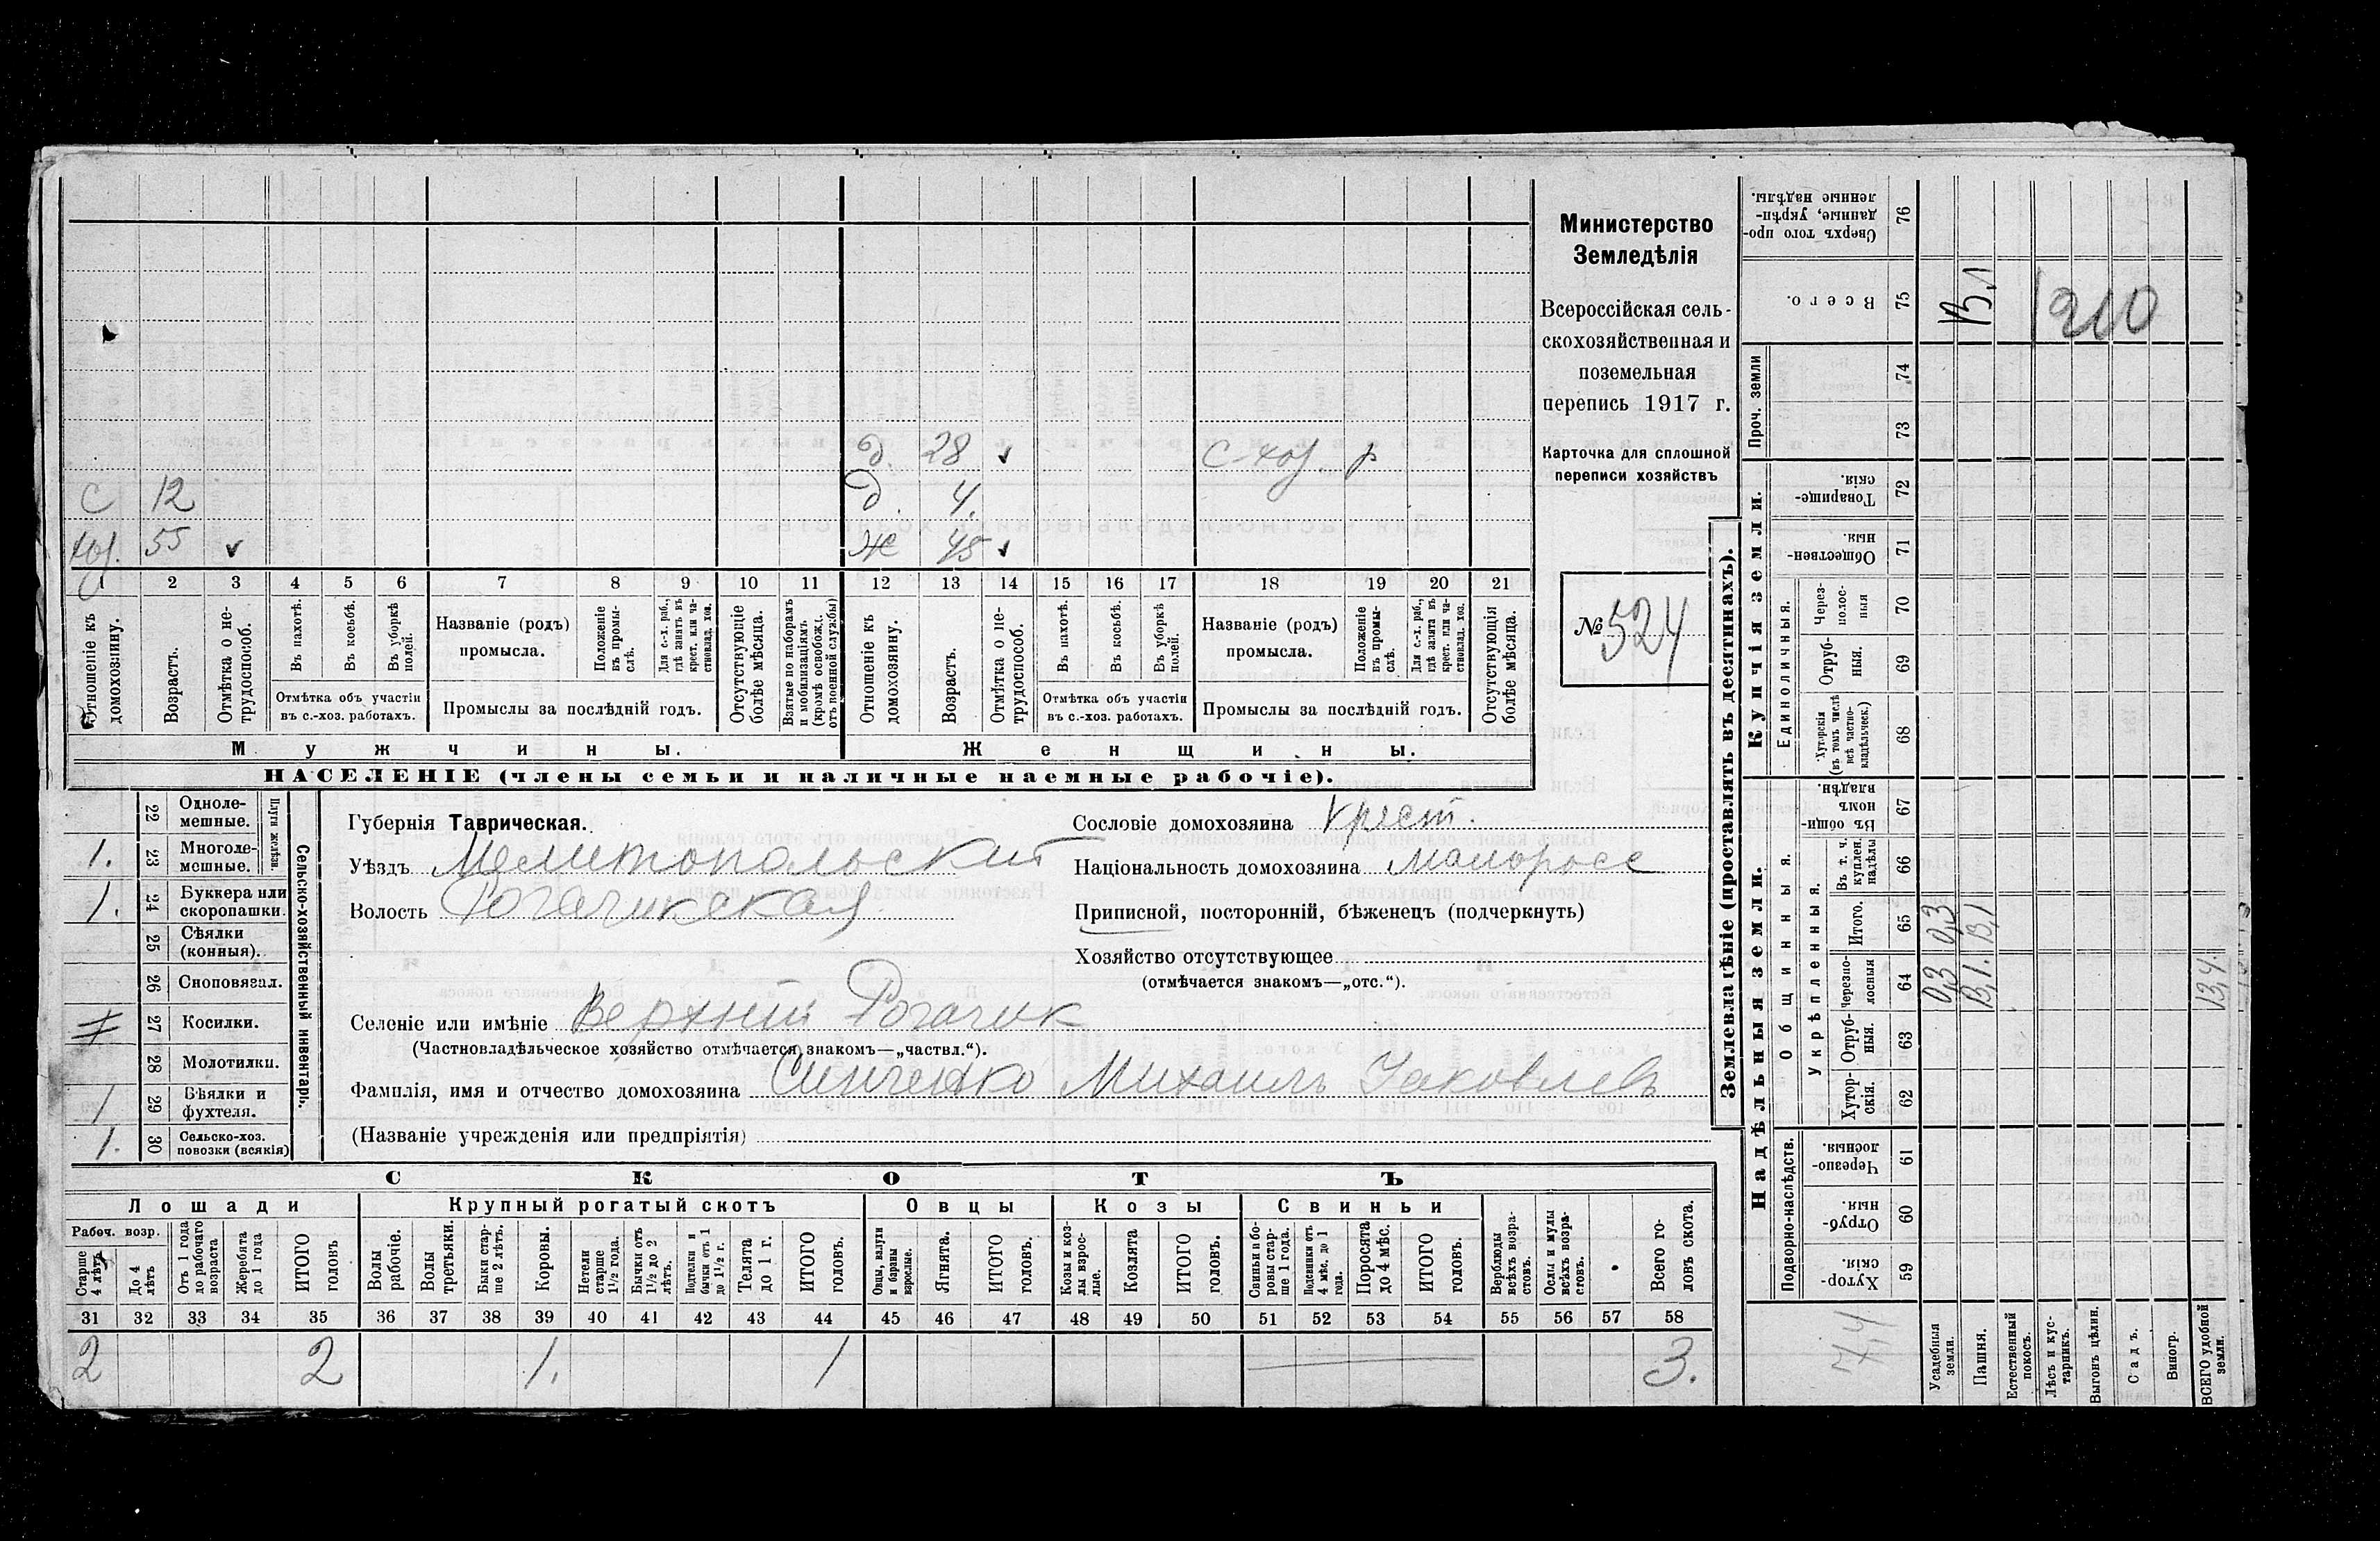 д. 28 ✓ С-хоз р
С 12 д. 4.
хоз. 55 ✓ ж 45 ✓
1 2 3 4 5 6 7 8 9 10 11 12 13 14 15 16 17 18 19 20 21
Отношеніе къ домохозяину.
Возрастъ.
Отмѣтка о не-трудоспособ.
Въ пахотѣ.
Въ косьбѣ.
Въ уборкѣ полей.
Отмѣтка объ участіи въ с.-хоз. работахъ.
Названіе (родъ) промысла.
Положеніе въ промы-слѣ.
Для с.-х. раб., гдѣ занятъ въ крест. или ча-стновлад. хоз.
Промыслы за послѣдній годъ.
Отсутствующіе болѣе мѣсяца.
Взятые по наборамъ и мобилизаціямъ (кромѣ освобожд. отъ военной службы)
Отношеніе къ домохозяину.
Возрастъ.
Отмѣтка о не-трудоспособ.
Въ пахотѣ.
Въ косьбѣ.
Въ уборкѣ полей.
Отмѣтка объ участіи въ с.-хоз. работахъ.
Названіе (родъ) промысла.
Положеніе въ промы-слѣ.
Для с.-х. раб., гдѣ занята въ крест. или ча-стновлад. хоз.
Промыслы за послѣдній годъ.
Отсутствующія болѣе мѣсяца.
Мужчины. Женщины.
НАСЕЛЕНІЕ (члены семьи и наличные наемные рабочіе).
Министерство
Земледѣлія
Всероссійская сель-
скохозяйственная и
поземельная
перепись 1917 г.
Карточка для сплошной
переписи хозяйствъ
№ 524
Сельско-хозяйственный инвентарь.
Плуги желѣзн.
22 Одноле-мешные.
1. 23 Многоле-мешные.
1. 24 Буккера или скоропашки.
25 Сѣялки (конныя).
26 Сноповязал.
27 Косилки.
28 Молотилки.
1 29 Вѣялки и фухтеля.
1. 30 Сельско-хоз. повозки (всякія)
Губернія Таврическая.
Уѣздъ Мелитопольскій
Волость Рогачикская
Сословіе домохозяина Крест.
Національность домохозяина малоросс
Приписной, посторонній, бѣженецъ (подчеркнуть)
Хозяйство отсутствующее
(отмѣчается знакомъ—„отс.“).
Селеніе или имѣніе Верхній Рогачик
(Частновладѣльческое хозяйство отмѣчается знакомъ—„частвл.“).
Фамилія, имя и отчество домохозяина Синченко Михаилъ Яковлевъ
(Названіе учрежденія или предпріятія)
СКОТЪ
Лошади Крупный рогатый скотъ Овцы Козы Свиньи
Рабоч. возр.
Старше 4 лѣтъ
До 4 лѣтъ
Отъ 1 года до рабочаго возраста
Жеребята до 1 года
ИТОГО головъ
Волы рабочіе.
Волы третьяки.
Быки стар-ше 2 лѣтъ.
Коровы.
Нетели старше 1½ года.
Бычки отъ 1½ до 2 лѣтъ.
Подтелки и бычки отъ 1 до 1½ г.
Телята до 1 г.
ИТОГО головъ.
Овцы, валухи и бараны взрослые.
Ягнята.
ИТОГО головъ.
Козы и коз-лы взрос-лые.
Козлята
ИТОГО головъ.
Свиньи и бо-ровы стар-ше 1 года.
Подсвинки отъ 4 мѣс. до 1 года.
Поросята до 4 мѣс.
ИТОГО головъ.
Верблюды всѣхъ возра-стовъ.
Ослы и мулы всѣхъ возра-стовъ.
Всего го-ловъ скота.
31 32 33 34 35 36 37 38 39 40 41 42 43 44 45 46 47 48 49 50 51 52 53 54 55 56 57 58
2 2 1. 1 3.
Землевладѣніе (проставлять въ десятинахъ).
Сверхъ того про-данные, укрѣп-ленные надѣлы. 76
Всего. 75
Вл 1210
Проч. земли 74
73
Купчія земли.
Товарище-скія. 72
Обществен-ныя. 71
Единоличныя.
Через-полос-ныя 70
Отруб-ныя. 69
Хуторскія (въ томъ числѣ всѣ частно-владѣльческ.) 68
Надѣльныя земли.
Общинныя.
Въ общин-номъ владѣн. 67
Укрѣпленныя.
Въ т. ч. куплен. надѣлы 66
Итого. 65 0,3 13,1
Черезпо-лосныя 64 0,3 13,1. 13,4.
Отруб-ныя. 63
Хутор-скія. 62
Подворно-наслѣдств.
Черезпо-лосныя. 61
Отруб-ныя 60
Хутор-скія. 59
7,4
Усадебныя земли.
Пашня.
Естественный покосъ.
Лѣсъ и кус-тарникъ.
Выгонъ цѣлин.
Садъ.
Виногр.
ВСЕГО удобной земли.